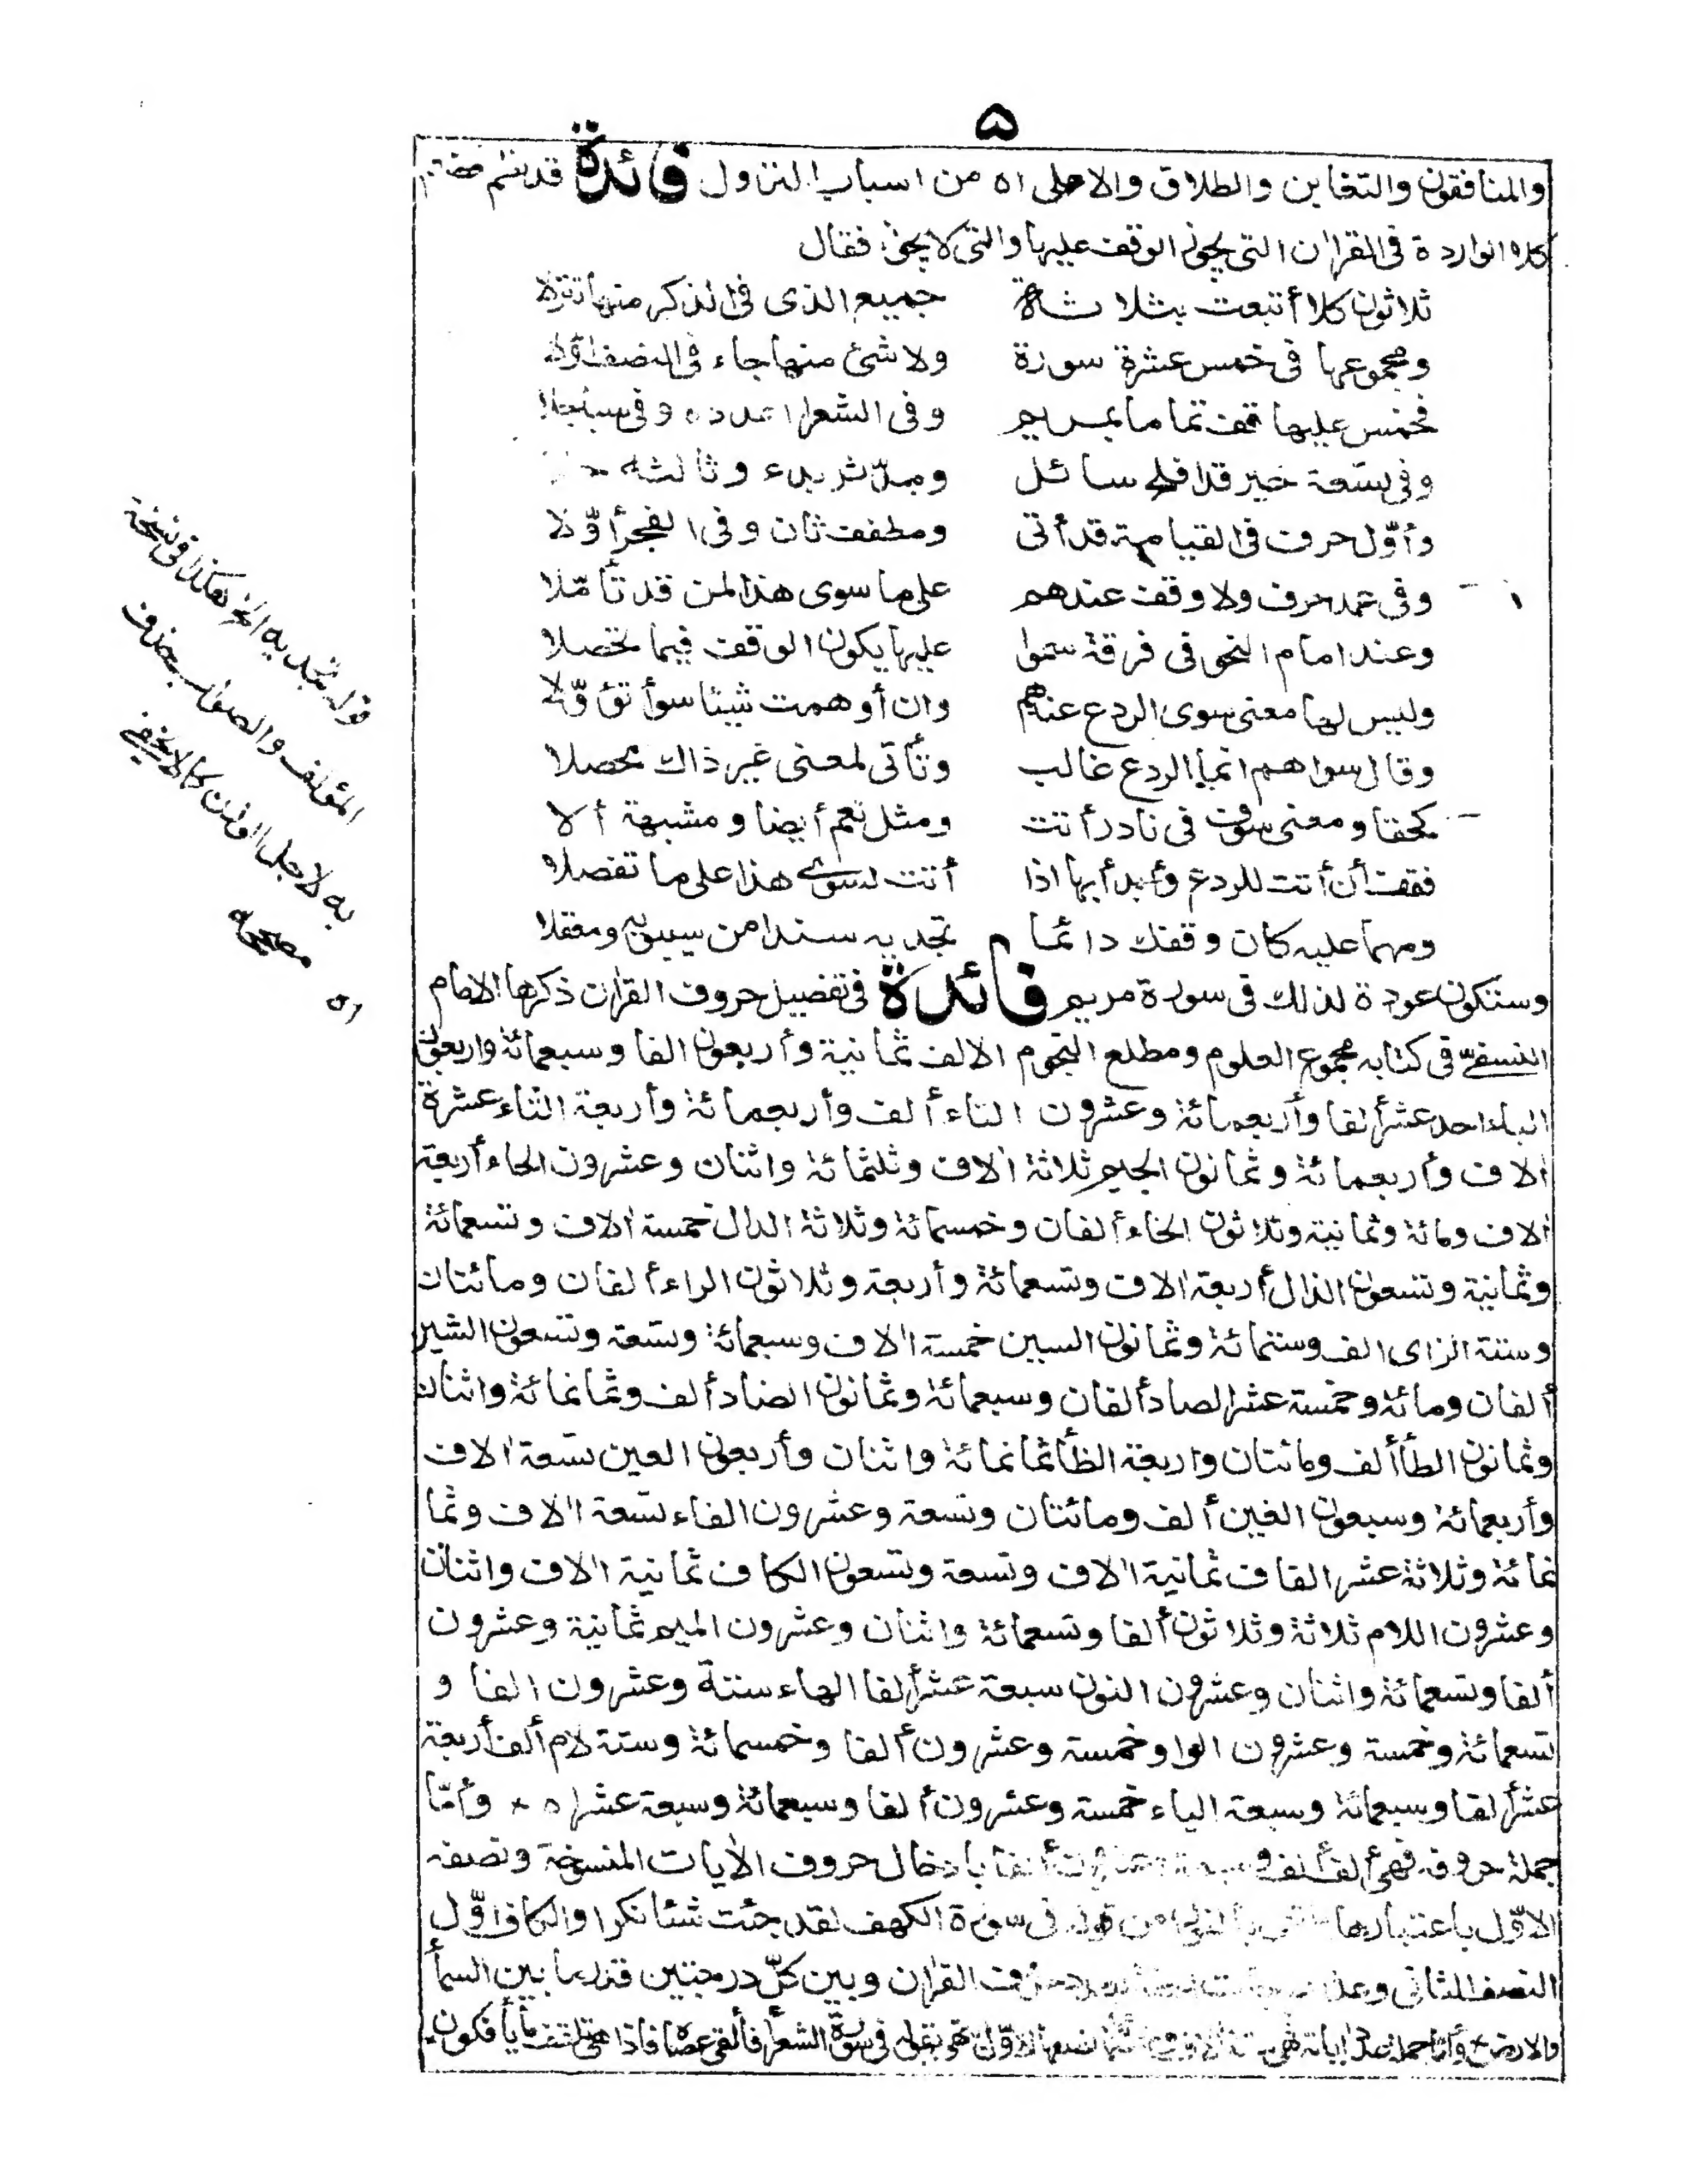 ٥
والمنافقون والتغابن والطلاق والاعلى اه من اسباب النزول فائدة قد نظم
كلا الواردة فى القرآن التى يجوز الوقف عليها والتى لا يجوز فقال
ثلاثون كلا أتبعت بثلاثة جميع الذى فى الذكر منها تنزلا
ومجموعها فى خمس عشرة سورة ولا شئ منها جاء فى النصف اوّلا
فخمس عليها قف تماما بمريم وفى الشعرا عدده وفى سبأ جلا
وفى تسعة خير قد افلح سائل ومدّثر بدء وثالثه
وأوّل حرف فى القيامة قد أتى ومطفف ثان وفى الفجر أوّلا
وفى عمد حرف ولا وقف عندهم على ما سوى هذا لمن قد تأمّلا
وعند امام النحو فى فرقة سموا عليها يكون الوقف فيما تحصلا
وليس لها معنى سوى الردع عندهم وان أوهمت شيئا سواه تؤوّلا
وقال سواهم انما الردع غالب وتأتى لمعنى غير ذاك محصلا
كحقا ومعنى سوف فى نادر أتت ومثل نعم أيضا ومشبهة ألا
فقف أن أتت للردع وأبدأ بها اذا أتت لسوى هذا على ما تفصلا
ومهما عليه كان وقفك دائما تجد به سندا من سيبويه ومعقلا
وستكون عودة لذلك فى سورة مريم فائدة فى تفصيل حروف القرآن ذكرها الامام
النسفىّ فى كتابه مجموع العلوم ومطلع النجوم الالف ثمانية وأربعون الفا وسبعمائة واربعون
الباء احد عشر ألفا وأربعمائة وعشرون التاء ألف وأربعمائة وأربعة الثاء عشرة
آلاف وأربعمائة وثمانون الجيم ثلاثة آلاف وثلثمائة واثنان وعشرون الحاء أربعة
آلاف ومائة وثمانية وثلاثون الخاء ألفان وخمسمائة وثلاثة الدال خمسة آلاف وتسعمائة
وثمانية وتسعون الذال أربعة آلاف وتسعمائة وأربعة وثلاثون الراء ألفان ومائتان
وستة الزاى الف وستمائة وثمانون السين خمسة آلاف وسبعمائة وتسعة وتسعون الشين
ألفان ومائة وخمسة عشر الصاد ألفان وسبعمائة وثمانون الضاد ألف وثمانمائة واثنان
وثمانون الطأ ألف ومائتان واربعة الظأ ثمانمائة واثنان وأربعون العين تسعة آلاف
وأربعمائة وسبعون الغين ألف ومائتان وتسعة وعشرون الفاء تسعة آلاف وثما
نمائة وثلاثة عشر القاف ثمانية آلاف وتسعة وتسعون الكاف ثمانية آلاف واثنان
وعشرون اللام ثلاثة وثلاثون ألفا وتسعمائة واثنان وعشرون الميم ثمانية وعشرون
ألفا وتسعمائة واثنان وعشرون النون سبعة عشر ألفا الهاء ستة وعشرون الفا و
تسعمائة وخمسة وعشرون الواو خمسة وعشرون ألفا وخمسمائة وستة لام ألف أربعة
عشر ألفا وسبعمائة وسبعة الياء خمسة وعشرون ألفا وسبعمائة وسبعة عشر اه * وأمّا
جملة حروفه فهى ألف ألف وسبعة وعشرون ألفا بادخال حروف الآيات المنسوخة ونصفه
الاوّل باعتبارها من قوله فى سورة الكهف لقد جئت شيئا نكرا والكاف اوّل
النصف الثانى وعدد حروف القرآن وبين كلّ درجتين قدر ما بين السمأ
والارض وأمّا جملة عدد آياته فهى نصفها الاوّل فى سورة الشعرأ فألقى عصاه فاذا هى تلقف ما يأفكون
قوله تجد به الخ هكذا فى نسخة
المؤلف والصواب بحذف
به لاجل الوزن كما لا يخفى
اه مصححه